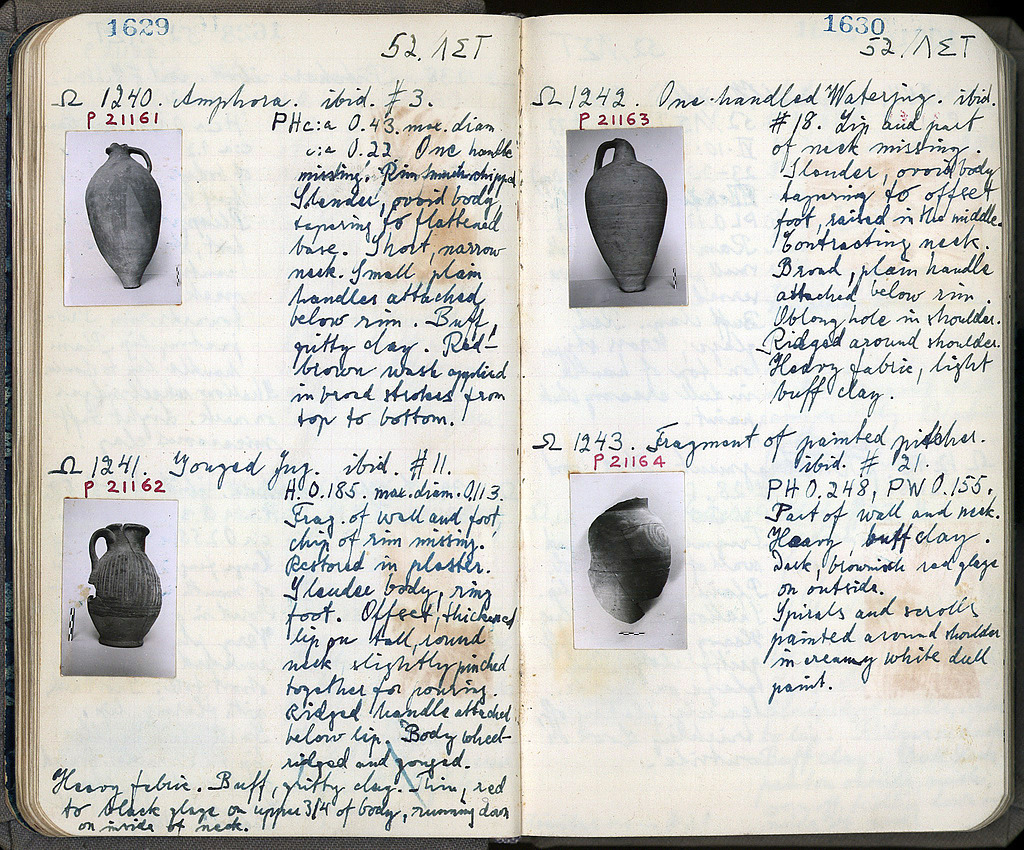 1629
52. ΛΣΤ
Ω 1240. Amphora. ibid. #3.
P 21161
PH c:a 0.43. max. diam.
c:a 0.22. One handle
missing. Rim much chipped.
Slender, ovoid body,
tapering to flattened
base. Short, narrow
neck. Small plain
handles attached
below rim. Buff
gritty clay. Red-
brown wash applied
in broad strokes from
top to bottom.
Ω 1241. Gouged Jug. ibid. #11.
P 21162
H. 0.185. max. diam. 0.113.
Frag. of wall and foot,
chip of rim missing.
Restored in plaster.
Slender body, ring
foot. Offset, thickened
lip on tall, round
neck slightly pinched
together for pouring.
Ridged handle attached
below lip. Body wheel-
ridged and gouged.
Heavy fabric. Buff, gritty clay. Thin, red
to black glaze on upper 3/4 of body, running down
on inside of neck.
1630
52. ΛΣΤ
Ω 1242. One-handled Waterjug. ibid.
P 21163
#18. Lip and part
of neck missing.
Slender, ovoid body
tapering to offset
foot, raised in the middle.
Contracting neck.
Broad, plain handle
attached below rim.
Oblong hole in shoulder.
Ridged around shoulder.
Heavy fabric, light
buff clay.
Ω 1243. Fragment of painted pitcher.
P 21164
ibid. # 21.
PH 0.248, PW 0.155.
Part of wall and neck.
Heavy, buff clay.
Dark, brownish red glaze
on outside.
Spirals and scrolls
painted around shoulder
in creamy white dull
paint.